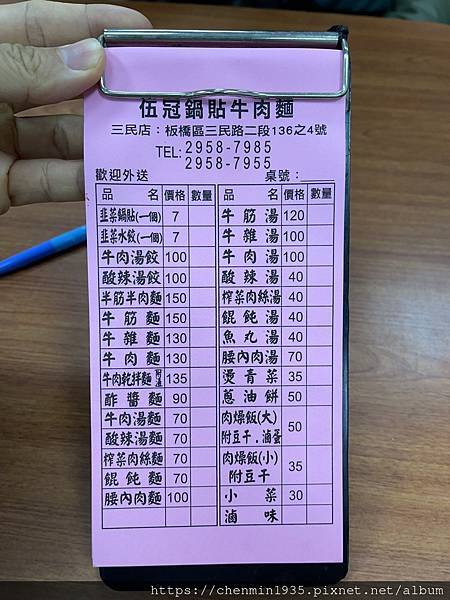 伍冠鍋貼牛肉麵
三民店：板橋區三民路二段136之4號
TEL: 2958-7985
2958-7955
歡迎外送 桌號：
品名 價格 數量
韭菜鍋貼(一個) 7
韭菜水餃(一個) 7
牛肉湯餃 100
酸辣湯餃 100
半筋半肉麵 150
牛筋麵 150
牛雜麵 130
牛肉麵 130
牛肉乾拌麵 附湯 135
酢醬麵 90
牛肉湯麵 70
酸辣湯麵 70
榨菜肉絲麵 70
餛飩麵 70
腰內肉麵 100
品名 價格 數量
牛筋湯 120
牛雜湯 100
牛肉湯 100
酸辣湯 40
榨菜肉絲湯 40
餛飩湯 40
魚丸湯 40
腰內肉湯 70
燙青菜 35
蔥油餅 50
肉燥飯(大)
附豆干．滷蛋 50
肉燥飯(小)
附豆干 35
小菜 30
滷味
https://chenmin1935.pixnet.net/album